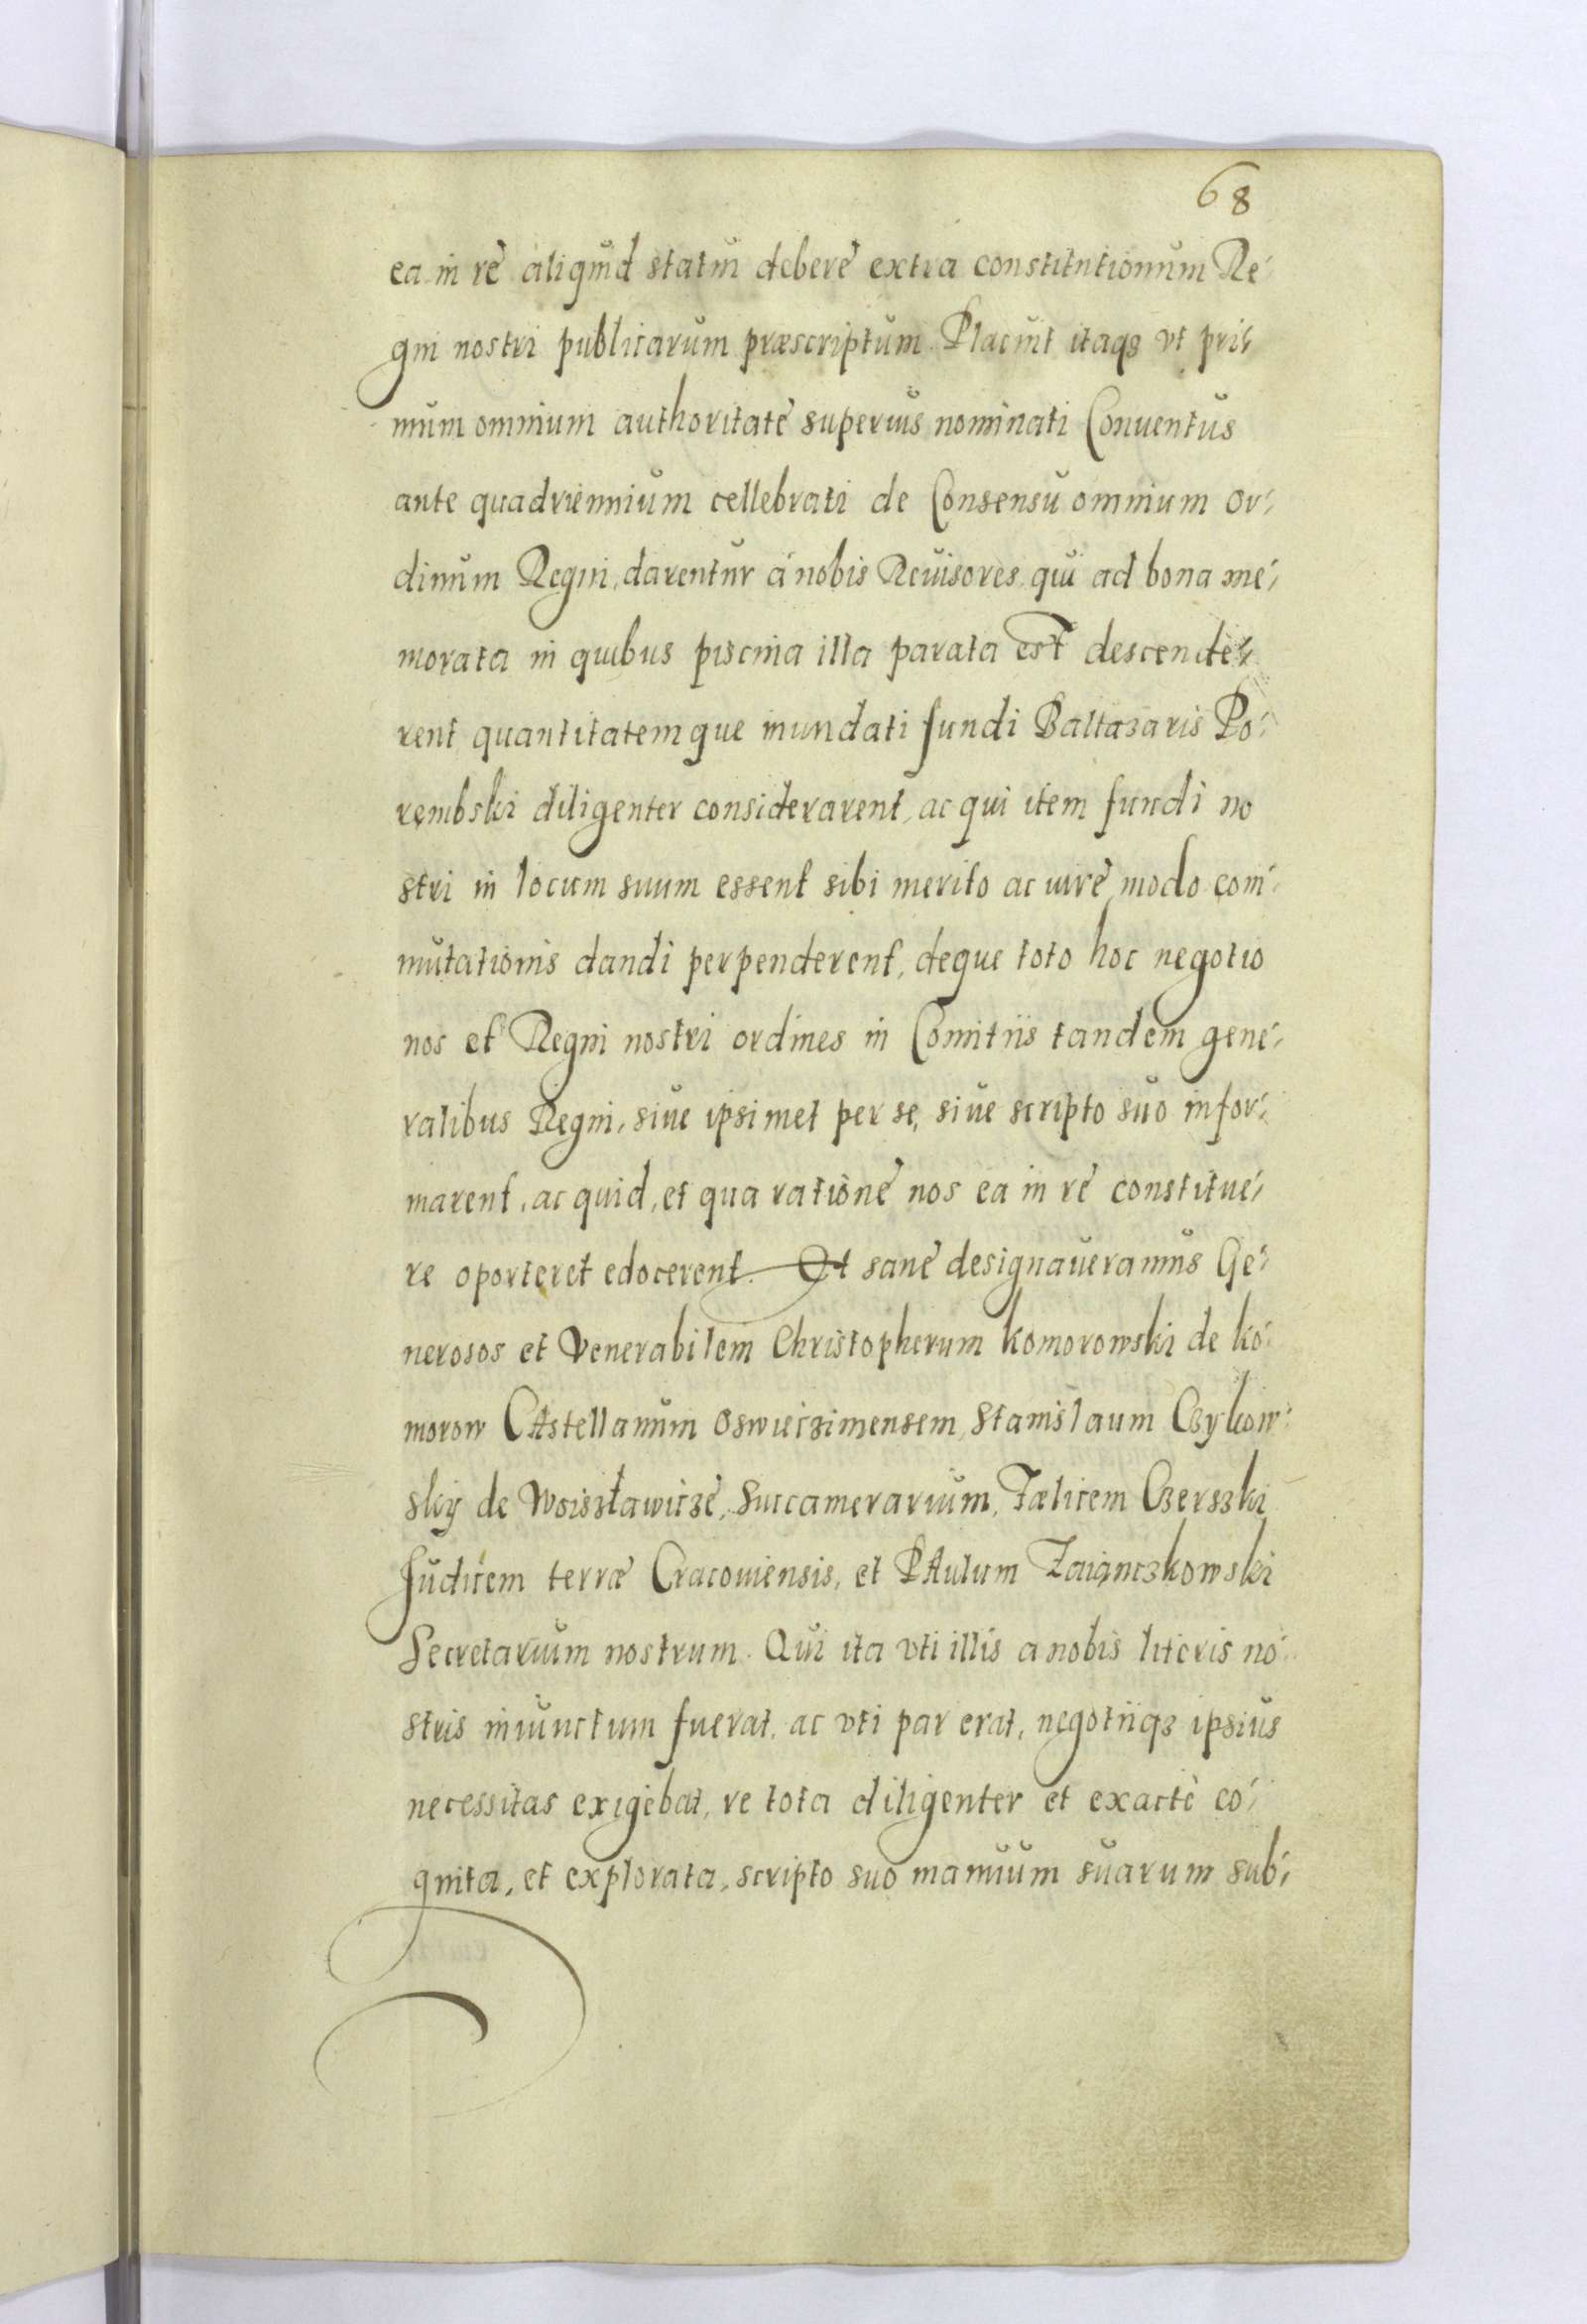 68
ea in re aliquid statui debere extra constitutionum Re-
gni nostri publicarum præscriptum. Placuit itaqȝ vt pri-
mum omnium authoritate superius nominati Conuentus
ante quadriennium cellebrati de Consensu omnium or-
dinum Regni, darentur á nobis Reuisores, qui ad bona me-
morata in quibus piscina illa parata est descende-
rent quantitatemque inundati fundi Baltazaris Po-
rembski diligenter considerarent, ac qui item fundi no
stri in locum suum essent sibi merito ac iure modo com-
mutationis dandi perpenderent, deque toto hoc negotio
nos et Regni nostri ordines in Comitiis tandem gene-
ralibus Regni, siue ipsimet per se, siue scripto suo infor-
marent, ac quid, et qua ratione nos ea in re constitue-
re oporteret edocerent. Et sane designaueramus Ge-
nerosos et Venerabilem Christopherum Komorowski de Ko-
morow CAstellanum Oswieczimensem, Stanislaum Czykow-
skÿ de Woiszławicze, Succamerarium, Fælicem Czerszki
Judicem terræ Cracouiensis, et PAulum Zaiączkowski
Secretarium nostrum. Qui ita vti illis a nobis literis no-
stris iniunctum fuerat, ac vti par erat, negotiiqȝ ipsius
necessitas exigebat, re tota diligenter et exactè co-
gnita, et explorata, scripto suo manuum suarum sub-